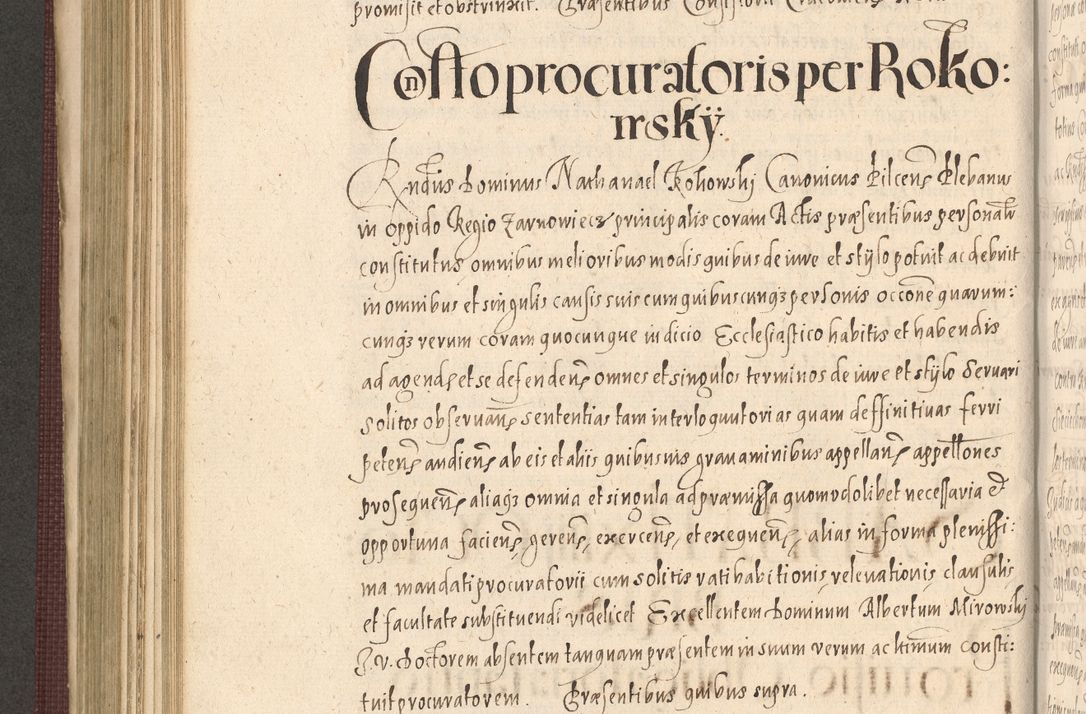 promisit et obstrinxit. Præsentibus
Constto procuratoris per Roko:
wskÿ.
Rndus Dominus Nathanael Rokowskj Canonicus Pilcens Plebanus
in oppido Regio Zarnowiecz principalis coram Actis præsentibus personalr
constitutus omnibus melioribus modis quibus de iure et stÿlo potuit ac debuit
in omnibus et singulis causis suis cum quibuscunqz personis occone quarum:
cunqz rerum coram quocunque iudicio Ecclesiastico habitis et habendis
ad agend et se defenden omnes et singulos terminos de iure et stÿlo servari
solitos observan sententias tam interloquutorias quam deffinitivas ferri
peten audien ab eis et aliis quibusvis gravaminibus appellan appellones
prosequen aliaqz omnia et singula ad præmissa quomodolibet necessaria et
opportuna facien, geren, exercen, et exequen, alias in forma plenissi:
ma mandati procuratorii cum solitis ratihabitionis, relevationis clausulis
et facultate substituendi videlicet Excellentem Dominum Albertum Mirowskj
J. V. Doctorem absentem tanquam præsentem in suum verum ac ltimum consti:
tuit procuratorem. Præsentibus quibus supra.